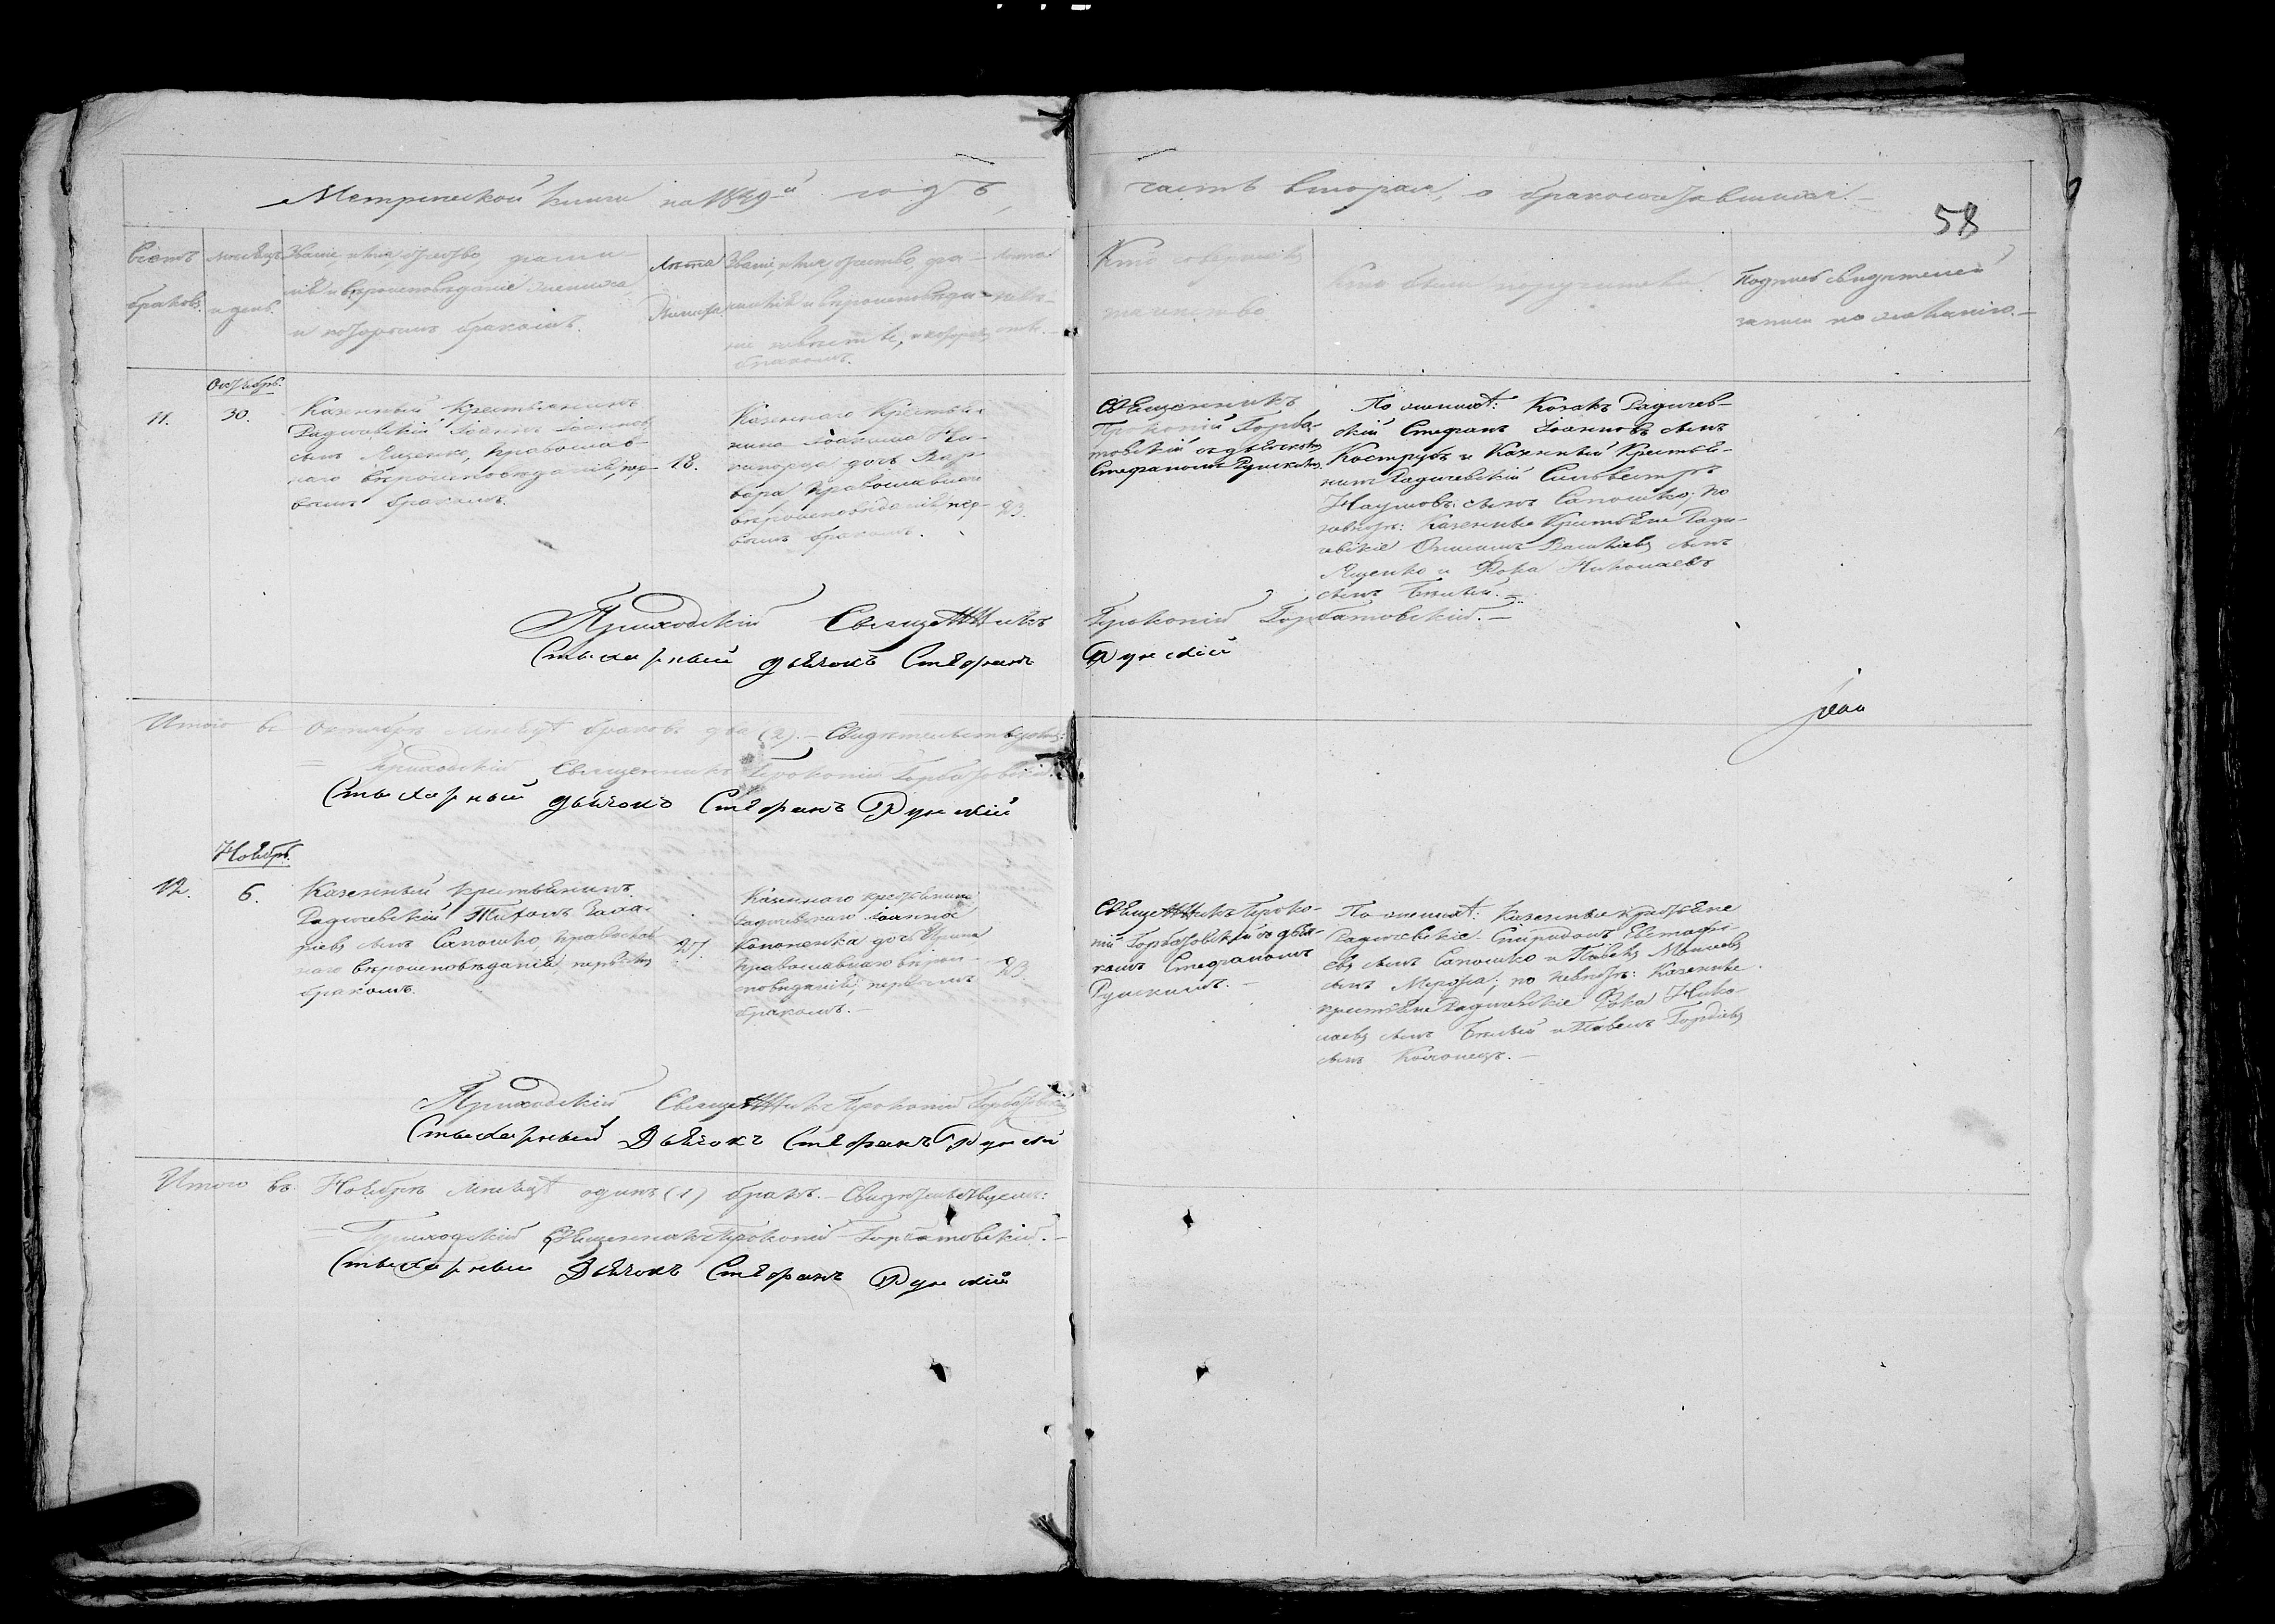 Метрической книги на 1849й годъ,
часть вторая, о бракосочетавшихся.
58
Счетъ браковъ.
Мѣсяцъ и день.
Званіе, имя, отчество, фами-
лія и вѣроисповѣданіе жениха
и которымъ бракомъ.
Лѣта
Жениха.
Званіе, имя, отчество, фа-
милія и вѣроисповѣда-
ніе невѣсты, и которымъ
бракомъ.
Лѣта
невѣ-
сты.
Кто совершалъ
таинство
Кто были поручители.
Подпись свидѣтелей
записи по желанію.
Октябрь.
11.
30.
Казенный Крестьянинъ
Радичевскій Іоаннъ Іоанновъ
сынъ Яценко, православ-
наго вѣроисповѣданія, пер-
вымъ бракомъ.
18.
Казеннаго Крестья-
нина Іоакима
дочь Вар-
вара, православнаго
вѣроисповѣданія, пер-
вымъ бракомъ.
23.
Священникъ
Прокопій Горба-
товскій съ дьячкомъ
Стефаномъ
По женихѣ: Козакъ Радичев-
скій Стефанъ Іоанновъ сынъ
Кострубъ и Казенный Крестья-
нинъ Радичевскій Сильвестръ
Наумовъ сынъ Сапошко; по
невѣстѣ: Казенные Крестьяне Ради-
чевскіе Онисимъ Васильевъ сынъ
Яценко и Фока Николаевъ
сынъ Бѣлый.
Приходскій Священникъ Прокопій Горбатовскій.
Стихарный дьячокъ Стефанъ
Итого въ Октябрѣ мѣсяцѣ браковъ два (2). Свидѣтельствуемъ:
Приходскій Священникъ Прокопій Горбатовскій.
Стихарный дьячокъ Стефанъ
Ноябрь.
12.
6.
Казенный крестьянинъ
Радичевскій Тихонъ Заха-
ріевъ сынъ Сапошко, православ-
наго вѣроисповѣданія, первымъ
бракомъ.
27.
Казеннаго крестьянина
Радичевскаго Іоанна
Кононенка дочь Ирина,
православнаго вѣрои-
сповѣданія, первымъ
бракомъ.
23.
Священникъ Проко-
пій Горбатовскій съ дьяч-
комъ Стефаномъ
По женихѣ: Казенные крестьяне
Радичевскіе Спиридонъ Евстафі-
евъ сынъ Сапошко и Павелъ Моисеевъ
сынъ; по невѣстѣ: Казенные
крестьяне Радичевскіе Фока Нико-
лаевъ сынъ Бѣлый и Павелъ Гордіевъ
сынъ
Приходскій Священникъ Прокопій Горбатовскій
Стихарный Дьячокъ Стефанъ
Итого въ Ноябрѣ мѣсяцѣ одинъ (1) бракъ. Свидѣтельствуемъ:
Приходскій Священникъ Прокопій Горбатовскій.
Стихарный Дьячокъ Стефанъ